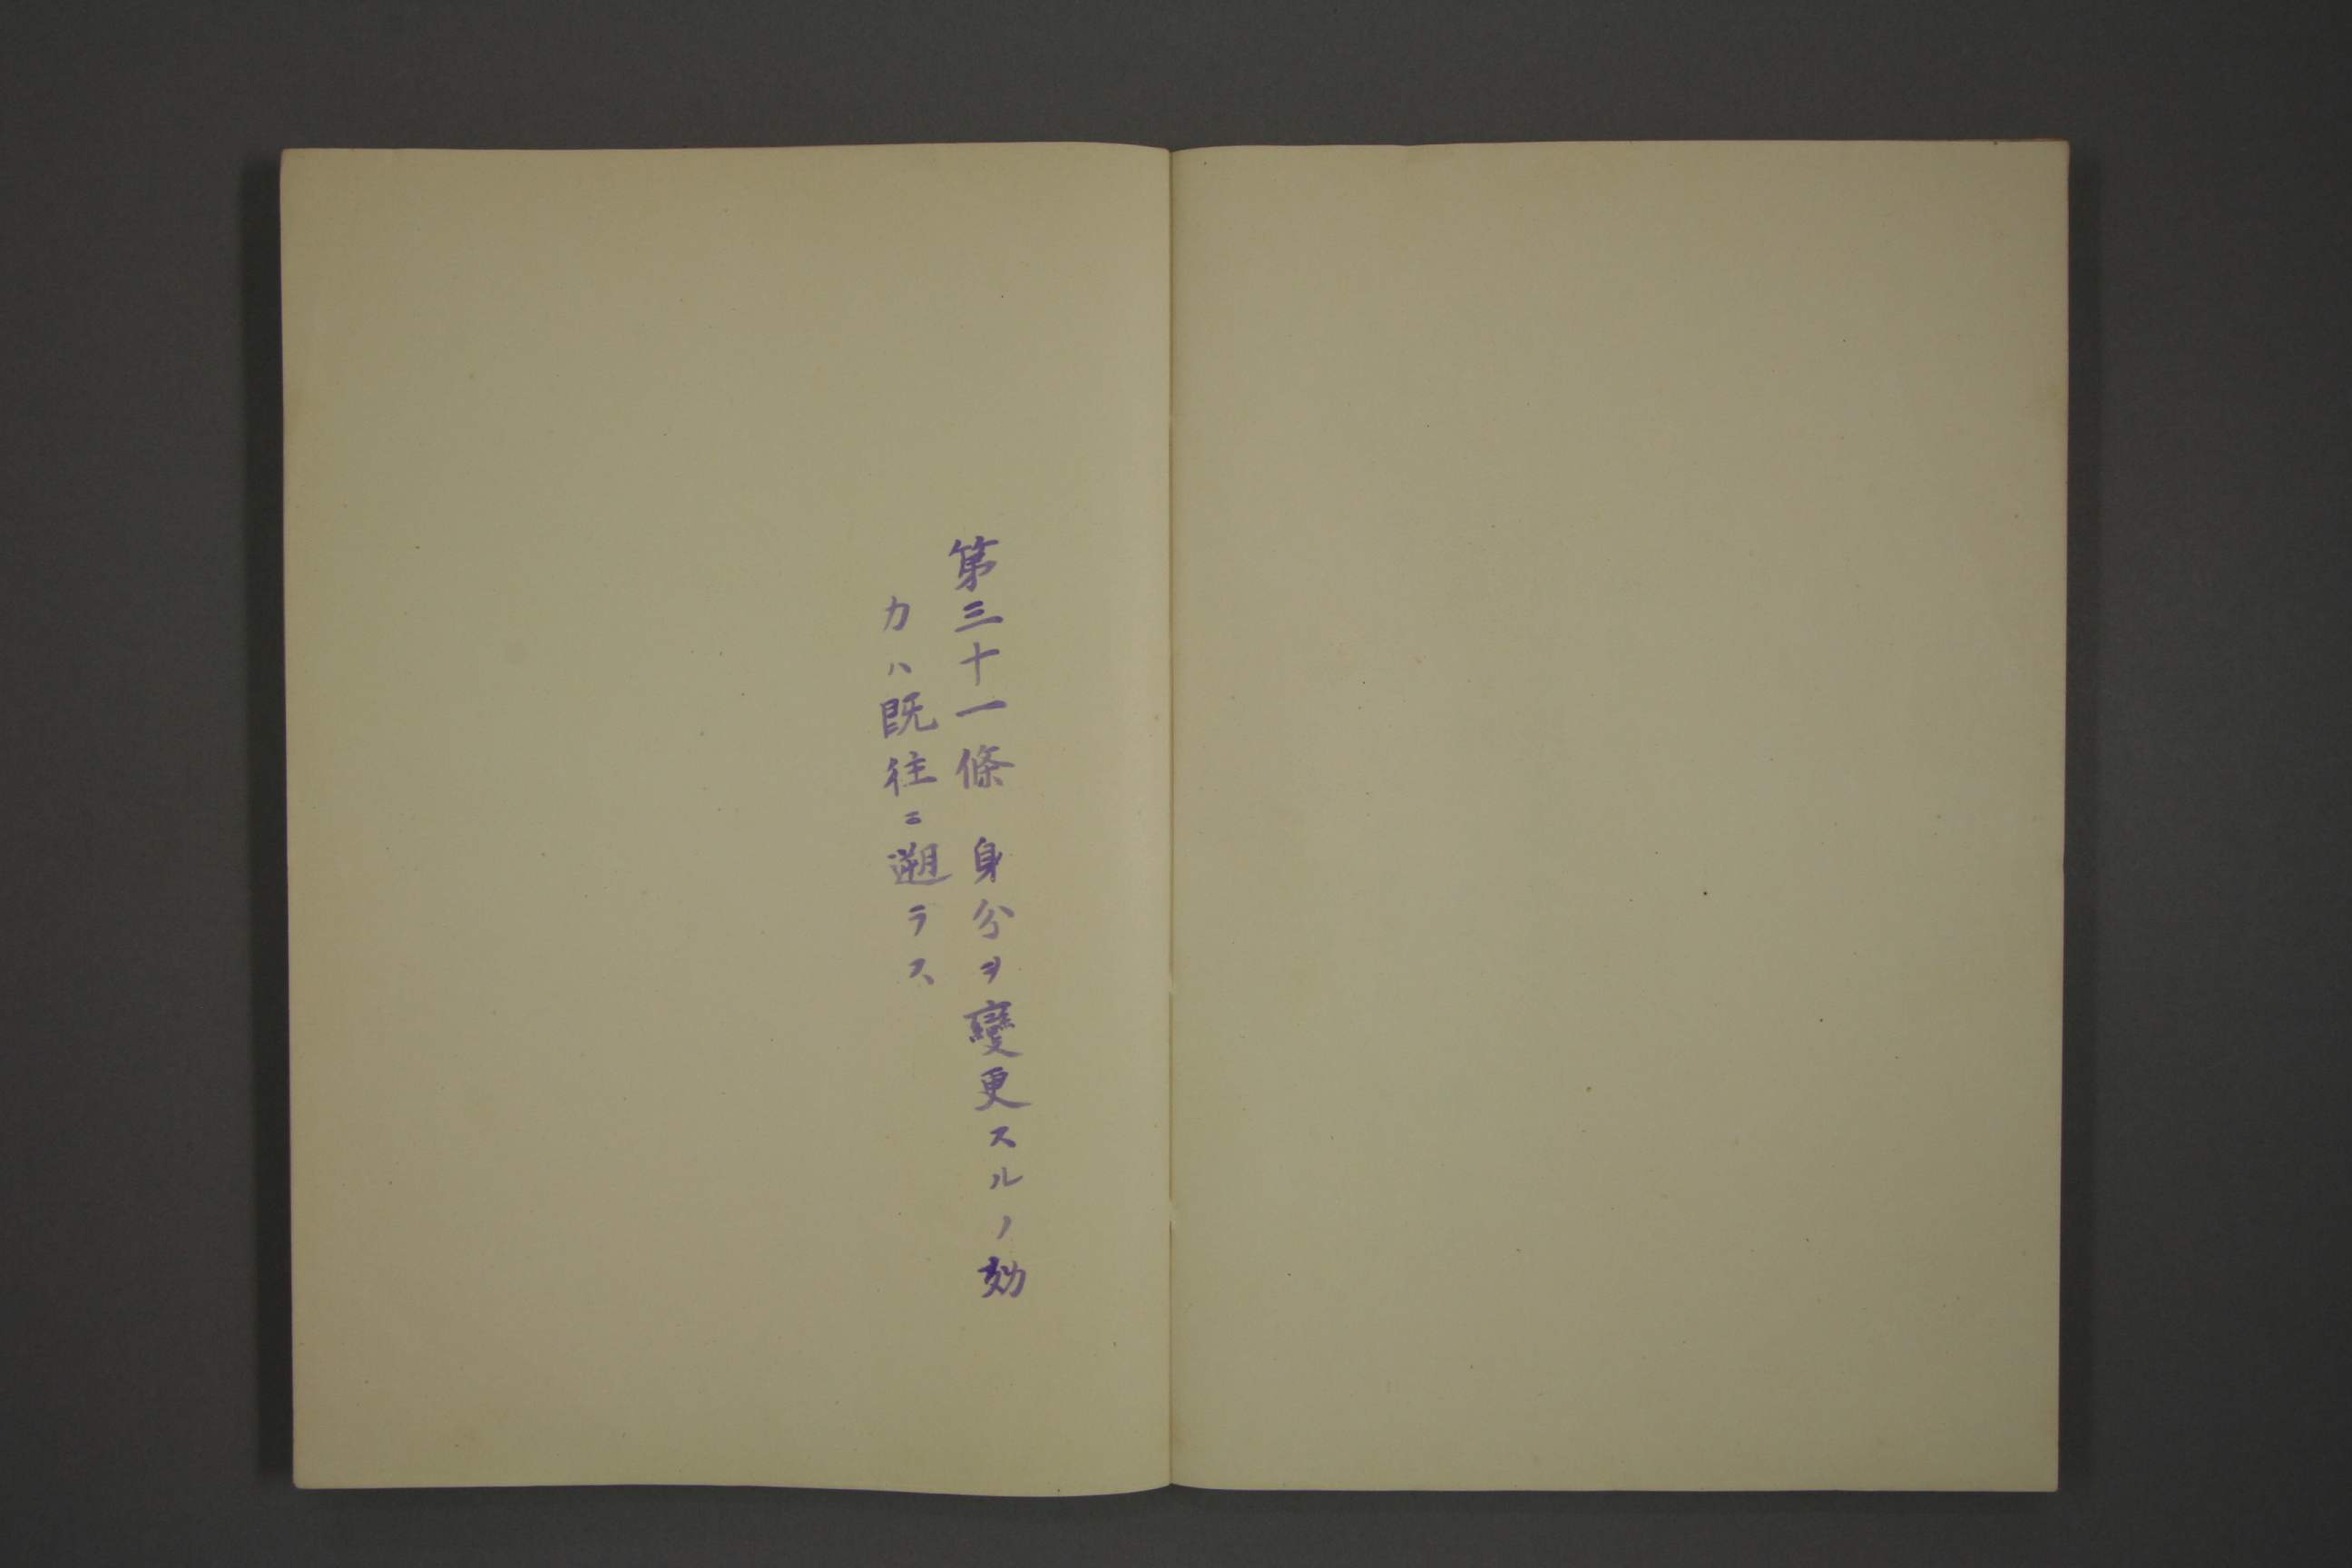 第三十一條 身分ヲ變更スルノ効
力ハ既往ニ遡ラス